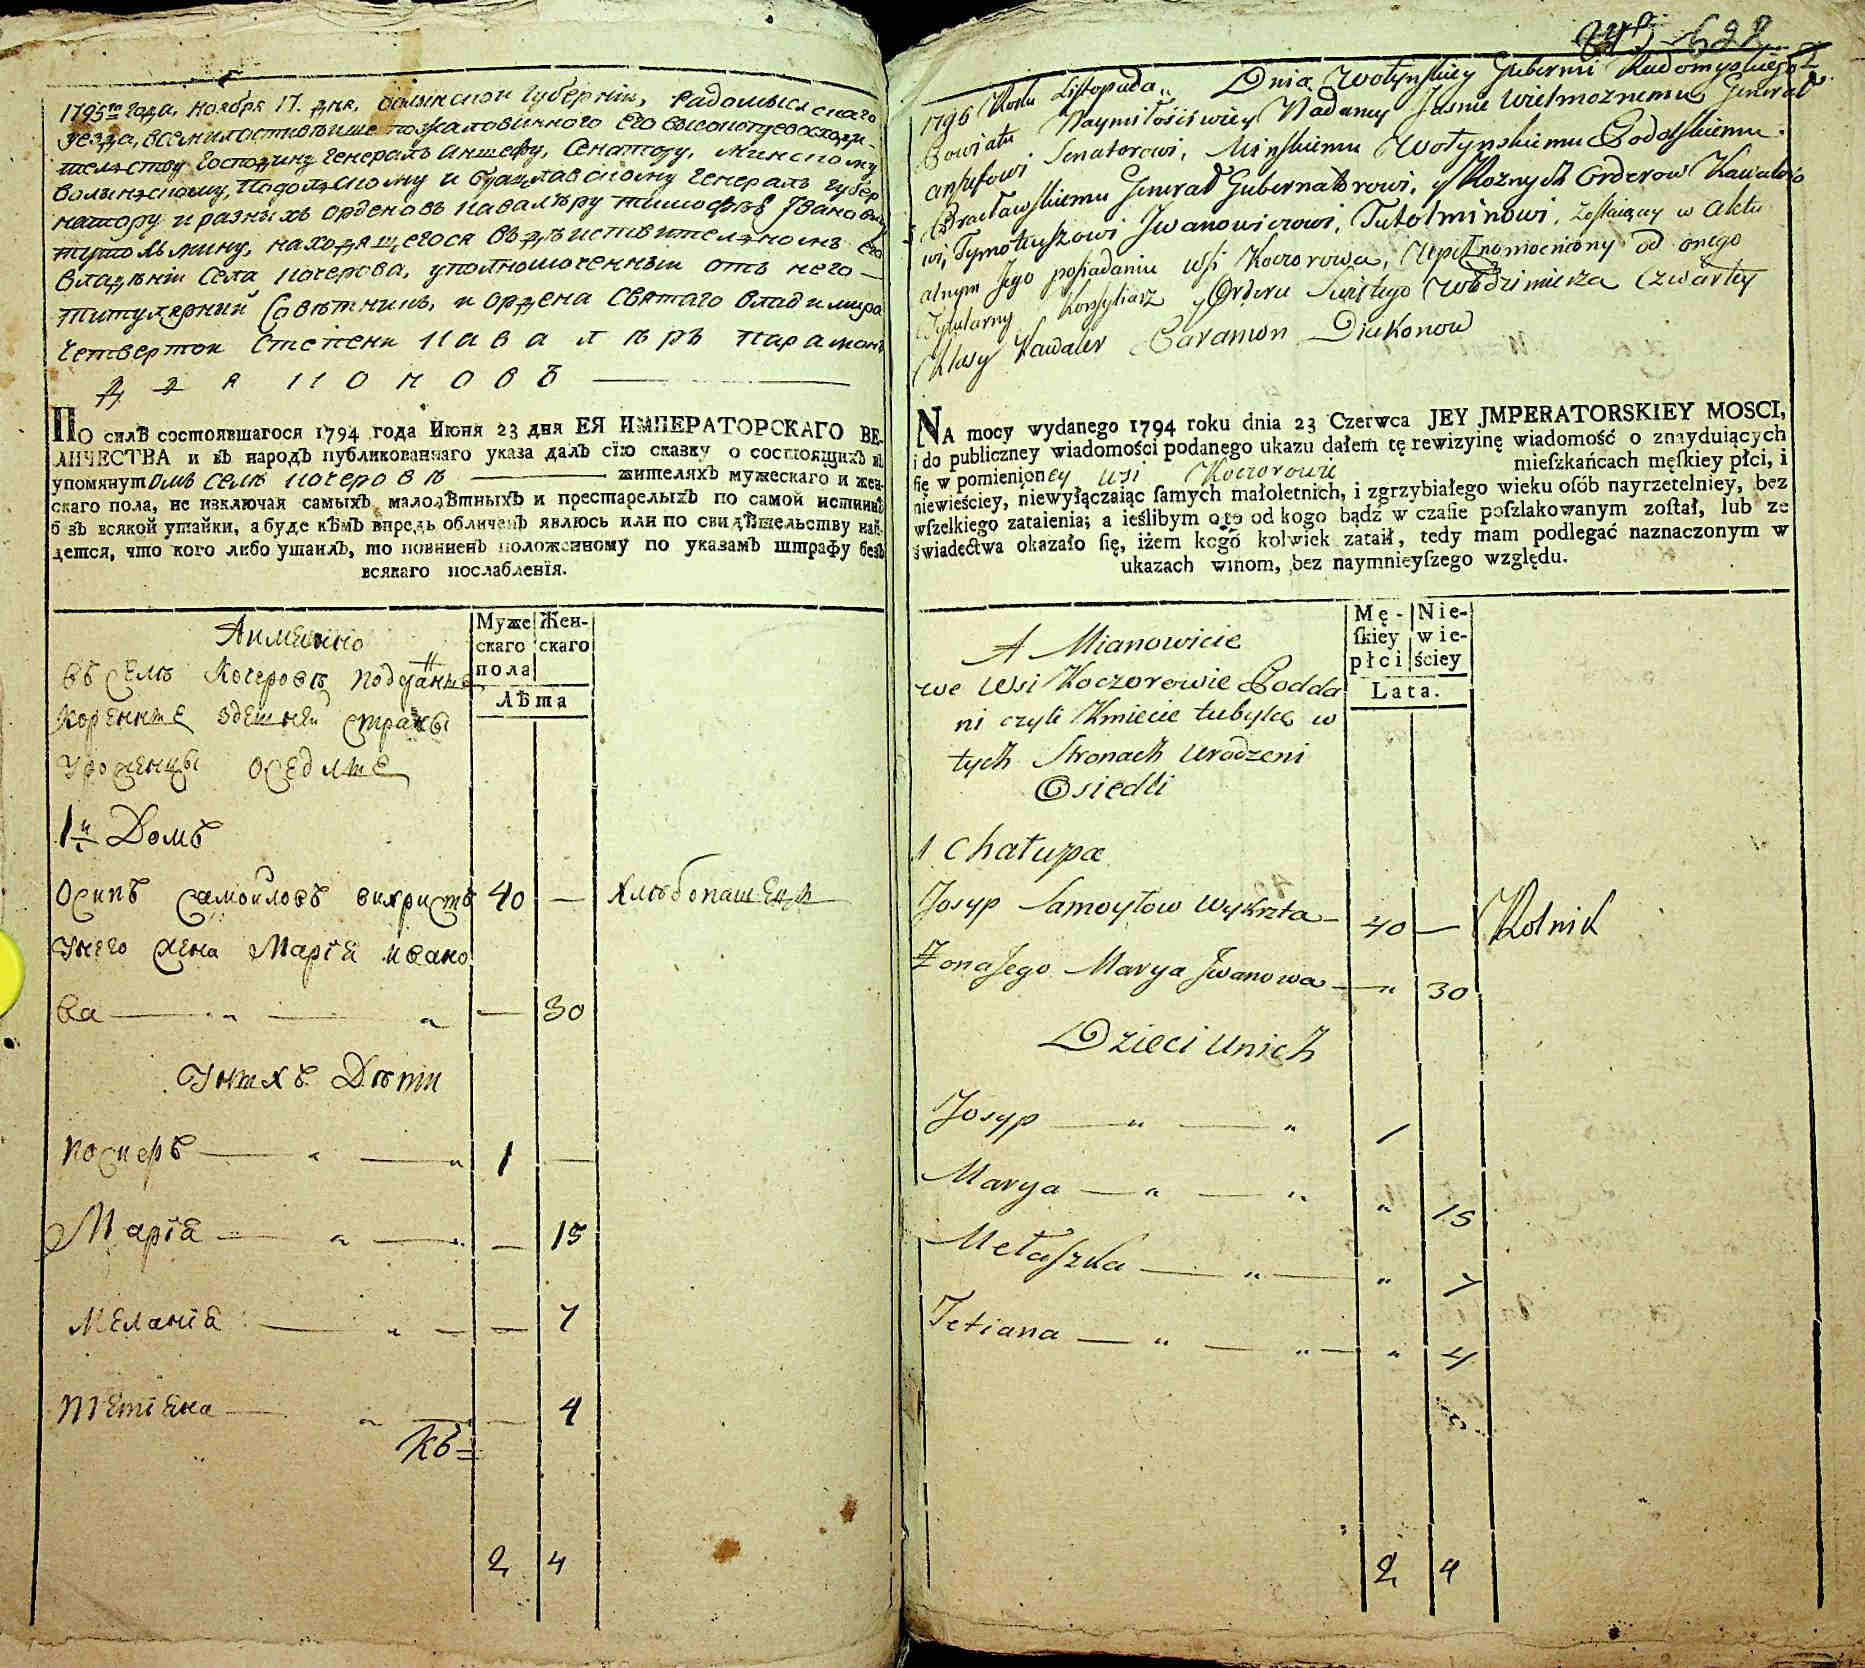 1795го года, ноября 17. дня, волынской губернїи, радомысльскаго
уезда, всемилостивѣйше пожалованного его высокопревосходи-
тельству господину генералъ аншефу, сенатору, минскому
волынскому, подольскому и брацлавскому генералъ губер
натору и разныхъ орденовъ кавалѣру тимофею Ивановичу
тутолмину, находящегося въ дѣиствителномъ его
владѣнїи села кочерова, уполномоченный отъ него —
титулярный Совѣтникъ, и ордена Святаго владимира
четвертой степени кавалѣръ парамонъ
дьяконовъ
ПО силѣ состоявшагося 1794 года Июня 23 дня ЕЯ ИМПЕРАТОРСКАГО ВЕ-
ЛИЧЕСТВА и въ народъ публикованнаго указа далъ сїю сказку о состоящихъ въ
упомянутомъ селѣ кочеровѣ —— жителяхъ мужескаго и жен-
скаго пола, не изключая самыхъ малолѣтныхъ и престарелыхъ по самой истиннѣ
безъ всякой утайки, а буде кѣмъ впредь обличенъ явлюсь или по свидѣтельству най-
дется, что кого либо утаилъ, то повиненъ положенному по указамъ штрафу безъ
всякаго послабленїя.
Муже
скаго
пола
Жен-
скаго
Лѣта
Аимянно
въ Селѣ Кочеровѣ подданные
коренные здешней страны
Уроженцы оседлые
1й Домъ
Осипъ Самойловъ викристъ 40 — хлѣбопашецъ
Унего жена Марїя ивано
ва — " — " — 30
Унихъ Дѣти
иосиеръ — " — " 1 —
Марїя — " — " — 15
Меланїя — " — — 7
Тетїяна — " — — 4
2 4
1796 Roku Listopada " Dnia Wołyńskiey Gubernii Radomyslskiego
Powiatu Naymiłościwiey Nadaney Jasnie Wielmożnemu Generał
anszefowi Senatorowi, Mińskiemu Wołyńskiemu Podolskiemu
Bracławskiemu Generał Gubernatorowi, y Rożnych Orderow Kawalero
wi, Tymoteuszowi Jwanowiczowi, Tutolminowi, zostaiącey w aktu
alnym Jego posiadaniu wsi Koczorowa, Upełnomocniony od onego
Tytularny Konsyliarz y Orderu Swiętego Włodzimierza Czwartey
Klasy Kawaler Paramon Diakonow
NA mocy wydanego 1794 roku dnia 23 Czerwca JEY JMPERATORSKIEY MOSCI,
i do publiczney wiadomości podanego ukazu dałem tę rewizyinę wiadomość o znayduiących
się w pomienioney wsi Koczorowie mieſzkańcach męſkiey płci, i
niewieściey, niewyłączaiąc ſamych małoletnich, i zgrzybiałego wieku oſób nayrzetelniey, bez
wſzelkiego zataienia; a ieślibym o to od kogo bądź w czaſie poſzlakowanym zoſtał, lub ze
świadectwa okazało ſię, iżem kogo kolwiek zataił, tedy mam podlegać naznaczonym w
ukazach winom, bez naymnieyſzego względu.
Mę-
ſkiey
płci
Nie-
wie-
ściey
Lata.
A Mianowicie
we wsi Koczorowie Podda
ni czyli Kmiecie tubylce w
tych Stronach urodzeni
Osiedli
1 Chałupa
Josyp Samoyłow Wykrzta — 40 — Rolnik
Żona Jego Marya Jwanowa — " 30
Dzieci unich
Josyp — " — " 1
Marya — " — " " 15
Mełaszka — " — " 7
Tetiana — " — " — " 4
2 4